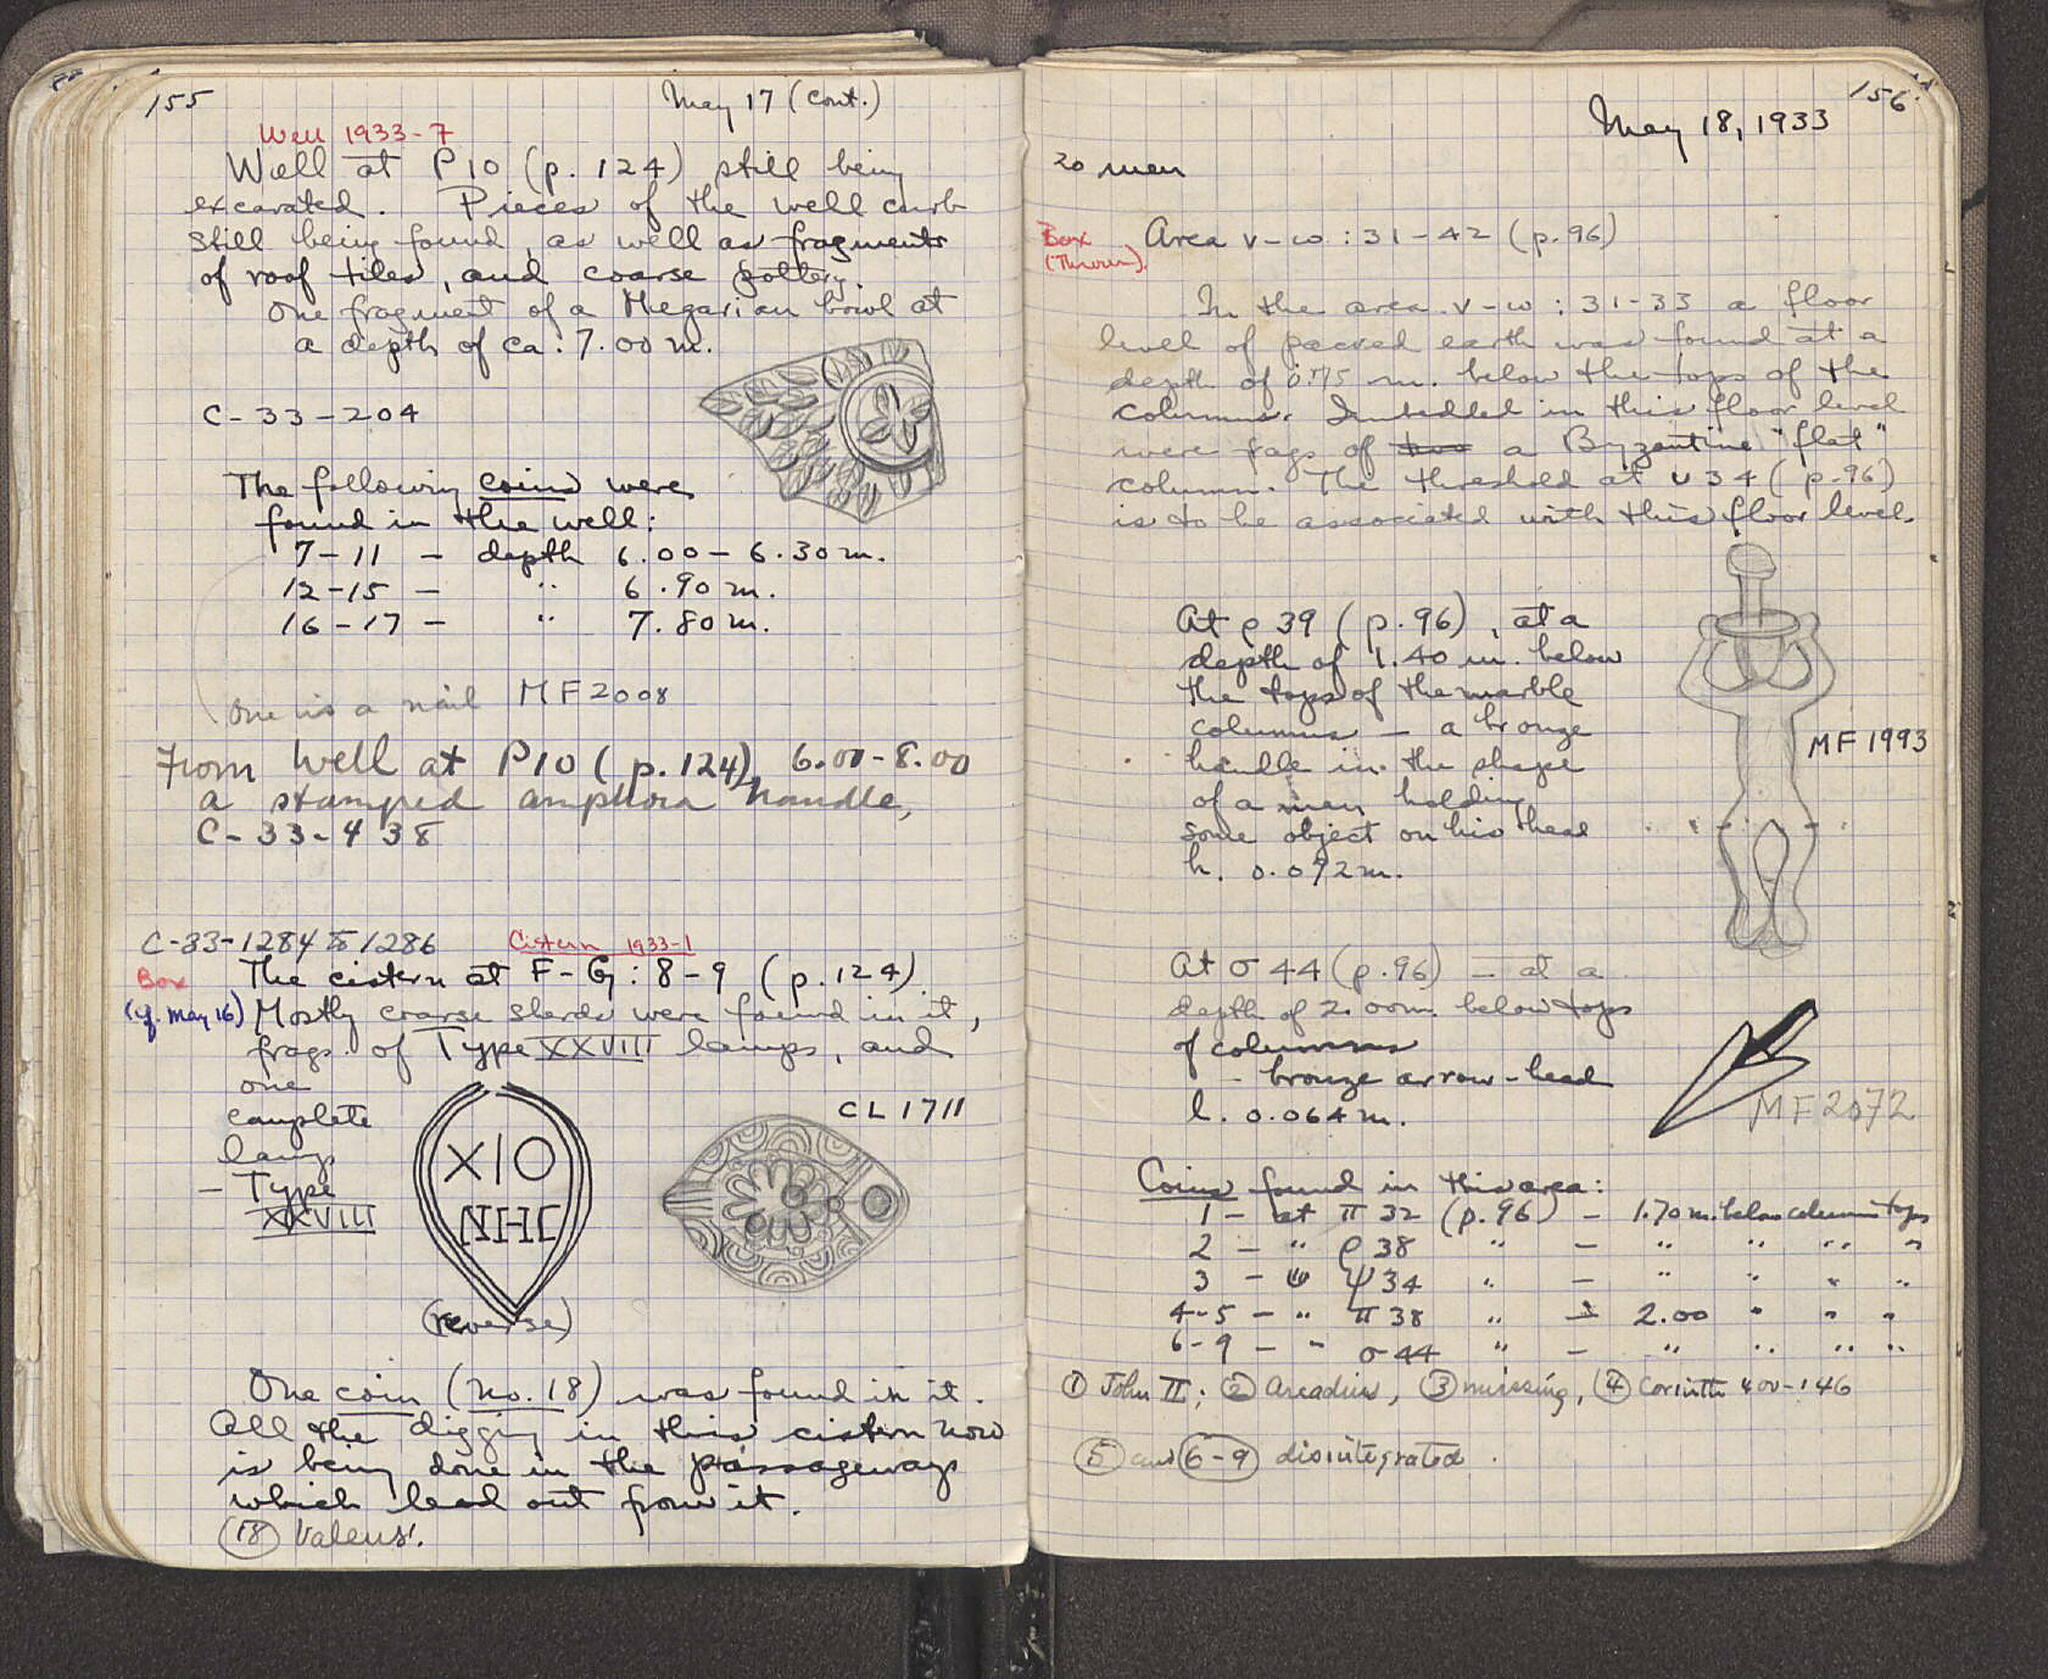 155
May 17 (cont.)
Well 1933-7
Well at P10 (p. 124) still being
excavated. Pieces of the well curb
still being found, as well as fragments
of roof tiles, and coarse pottery.
One fragment of a Megarian bowl at
a depth of ca. 7.00 m.
C-33-204
The following coins were
found in the well:
7-11 - depth 6.00 - 6.30 m.
12-15 - " 6.90 m.
16-17 - " 7.80 m.
One is a nail MF 2008
From Well at P10 (p. 124), 6.00-8.00
a stamped amphora handle,
C-33-438
C-33-1284 to 1286
Cistern 1933-1
Box
The cistern at F-G: 8-9 (p. 124)
(cf. May 16)
Mostly coarse sherds were found in it,
frags. of Type XXVIII lamps, and
one
complete
lamp
- Type
XXVIII
XIO
NHC
(reverse)
CL 1711
One coin (no. 18) was found in it.
All the digging in this cistern now
is being done in the passageways
which lead out from it.
(18) Valens.
156
May 18, 1933
20 men
Box
(Thrown).
Area v-w: 31-42 (p. 96)
In the area v-w: 31-33 a floor
level of packed earth was found at a
depth of 0.75 m. below the tops of the
columns. Imbedded in this floor level
were frags of two a Byzantine "flat"
column. The threshold at υ 34 (p. 96)
is to be associated with this floor level.
At ρ 39 (p. 96), at a
depth of 1.40 m. below
the tops of the marble
columns - a bronze
handle in the shape
of a man holding
some object on his head
h. 0.092 m.
MF 1993
At σ 44 (p. 96) - at a
depth of 2.00 m. below tops
of columns
- bronze arrow-head
l. 0.064 m.
MF 2072
Coins found in this area:
1 - at π 32 (p. 96) - 1.70 m. below column tops
2 - " ρ 38 " - " " " "
3 - " ψ 34 " - " " " "
4-5 - " π 38 " - 2.00 " " "
6-9 - " σ 44 " - " " " "
(1) John II; (2) Arcadius, (3) missing, (4) Corinth 400-146
(5) and (6-9) disintegrated.